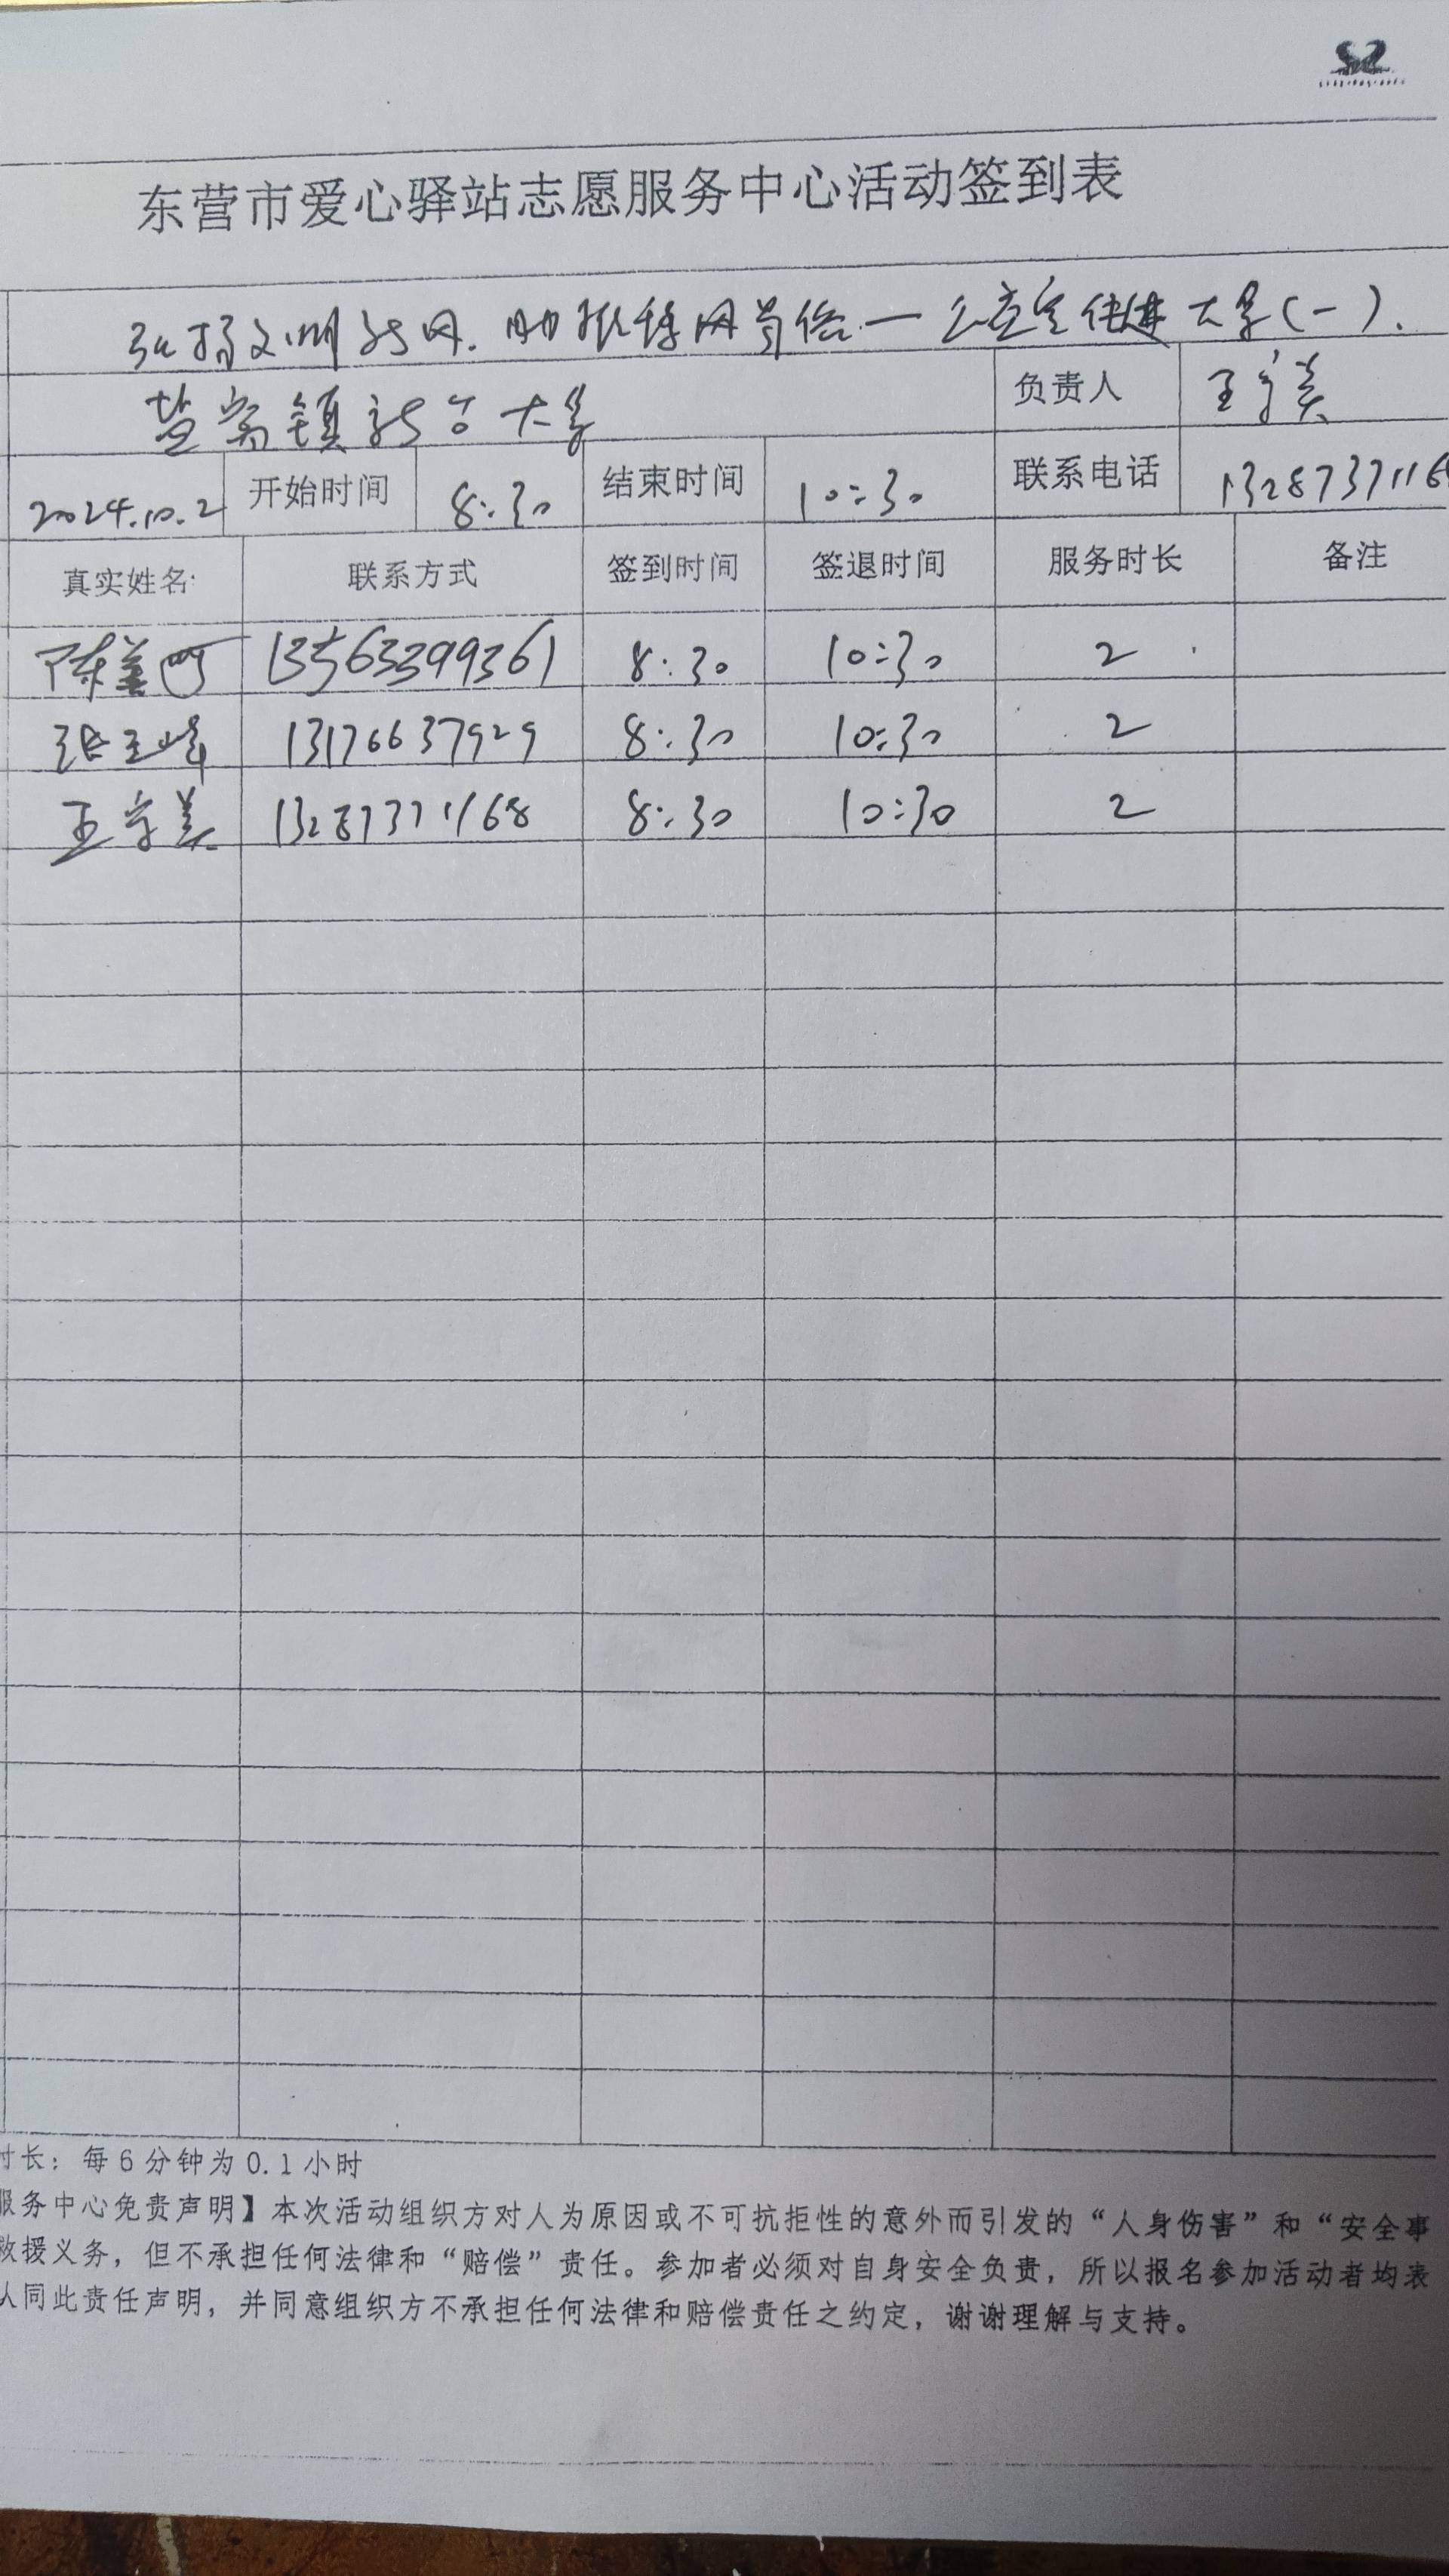 东营市爱心驿站志愿服务中心活动签到表
弘扬文明新风.助推移风易俗一公益宣传进大集(一).
盐窝镇新台大集 负责人 王守美
2024.10.2 开始时间 8:30 结束时间 10:30 联系电话 1328737116
真实姓名 联系方式 签到时间 签退时间 服务时长 备注
陈美町 13563399361 8:30 10:30 2
张玉峰 13176637929 8:30 10:30 2
王守美 13287371168 8:30 10:30 2
时长：每6分钟为0.1小时
服务中心免责声明】本次活动组织方对人为原因或不可抗拒性的意外而引发的“人身伤害”和“安全事
救援义务，但不承担任何法律和“赔偿”责任。参加者必须对自身安全负责，所以报名参加活动者均表
人同此责任声明，并同意组织方不承担任何法律和赔偿责任之约定，谢谢理解与支持。